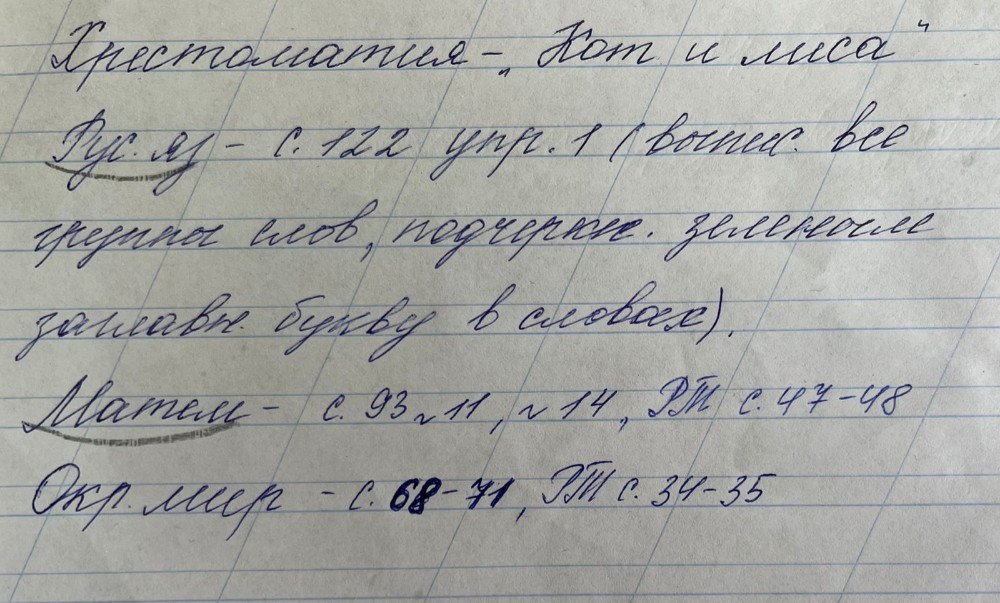 Хрестоматия - „Кот и лиса"
Рус. яз - с. 122 упр. 1 (выпис. все
группы слов, подчеркн. зеленым
заглавн. букву в словах).
Матем - с. 93 № 11, № 14, РТ с. 47-48
Окр. мир - с. 68-71, РТ с. 34-35